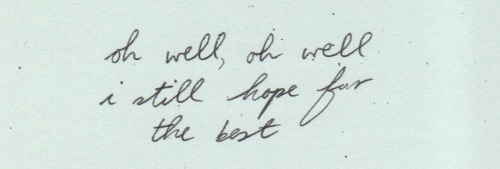 oh well, oh well
i still hope for
the best